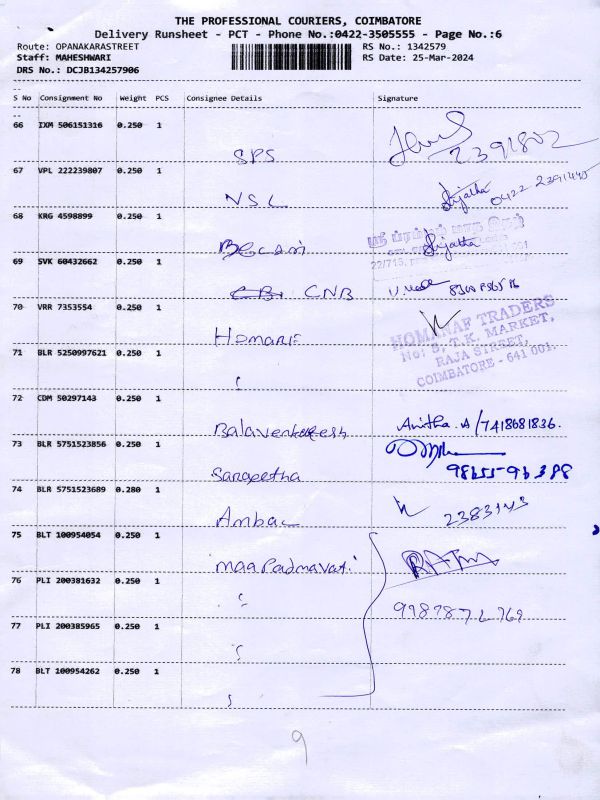 THE PROFESSIONAL COURIERS, COIMBATORE
Delivery Runsheet - PCT - Phone No.:0422-3505555 - Page No.:6
Route: OPANAKARASTREET
Staff: MAHESHWARI
DRS No.: DCJB134257906
RS No.: 1342579
RS Date: 25-Mar-2024
S No Consignment No Weight PCS Consignee Details Signature
66 IXM 506151316 0.250 1
SPS 2391802
67 VPL 222239807 0.250 1
NSL Sujatha 0422-2391445
68 KRG 4598899 0.250 1
Sujatha
69 SVK 60432662 0.250 1
CNB
70 VRR 7353554 0.250 1
HOMANAF TRADERS
No: 8, T.K. MARKET,
RAJA STREET,
COIMBATORE - 641 001.
71 BLR 5250997621 0.250 1
72 CDM 50297143 0.250 1
Anitha.A/7418681836.
73 BLR 5751523856 0.250 1
Sangeetha
74 BLR 5751523689 0.280 1
Ambal
75 BLT 100954054 0.250 1
maa Padmavati
76 PLI 200381632 0.250 1
77 PLI 200385965 0.250 1
78 BLT 100954262 0.250 1
9